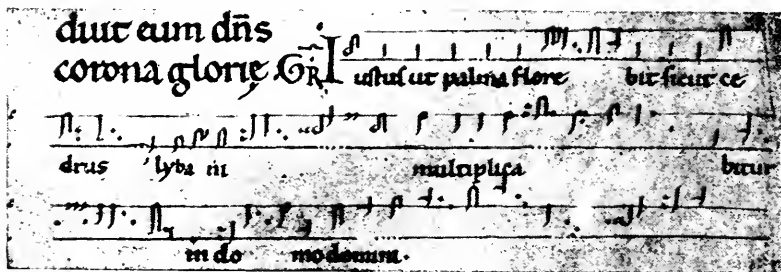 diut eum dñs
corona glorię. GR̃ Iustus ut palma flore bit sicut ce
drus lyba ni multiplica bitur
in do mo domini.